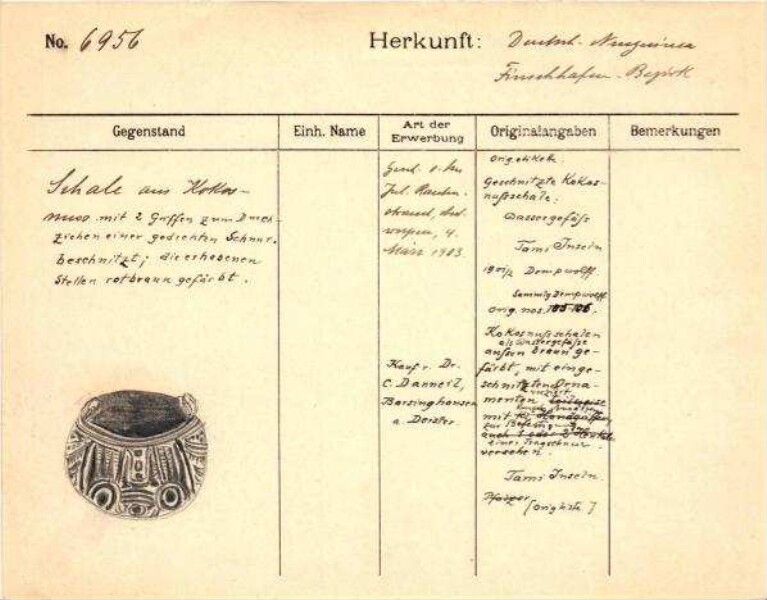 No. 6956
Herkunft: Deutsch. Neuguinea
Finschhafen-Bezirk
Gegenstand
Einh. Name
Art der
Erwerbung
Originalangaben
Bemerkungen
Schale aus Kokos-
nuss mit 2 zum Durch-
ziehen einer gedrehten Schnur.
beschnitzt; die erhobenen
Stellen rotbraun gefärbt.
4.
März 1903
Kauf v. Dr.
C. Danneil,
Barsinghausen
a. Deister.
Orig. etikett.
Geschnitzte Kokos-
nußschale.
Wassergefäß
Tami Inseln
Dempwolff.
Sammlg Dempwolff.
orig. nos. 105-106.
Kokosnußschalen
als Wassergefäße
außen braun ge-
färbt, mit einge-
schnitzten Orna-
menten
mit
zur
auch 1 oder 2
einer Tragschnur
versehen.
Tami Inseln.
[Origliste]